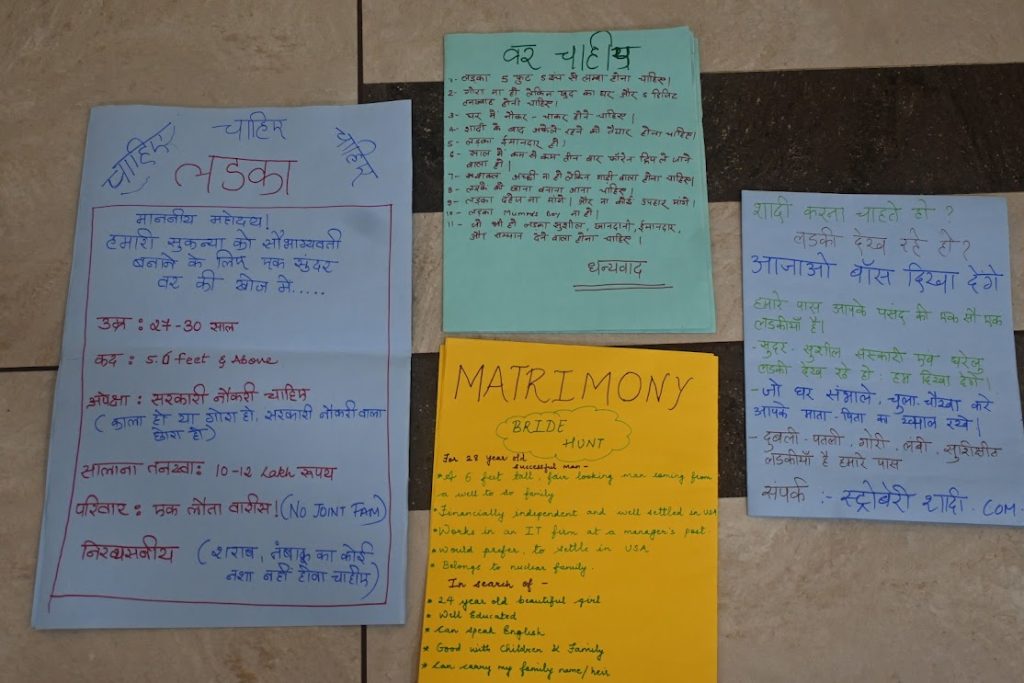 चाहिए
चाहिए
चाहिए
लडका
माननीय महोदय!
हमारी सुकन्या को सौभाग्यवती
बनाने के लिए एक सुंदर
वर की खोज मे.....
उम्र : 27-30 साल
कद : 5.0 feet & Above
अपेक्षा : सरकारी नौकरी चाहिए
(काला हो या गोरा हो, सरकारी नौकरी वाला
छोरा हो)
सालाना तनख्वा: 10-12 Lakh रूपय
परिवार : एक लौता वारीस! (NO JOINT FAM)
निरव्यसनीय (शराब, तंबाकू का कोई
नशा नहीं होना चाहीए)
वर चाहीए
1- लडका 5 फुट 5 इंच से लम्बा होना चाहिए।
2- गोरा ना हो लेकिन खुद का घर और 6 डिजिट
तनख्वाह होनी चाहिए।
3- घर में नौकर - चाकर होने चाहिए।
4- शादी के बाद अकेले रहने को तैयार होना चाहिए।
5- लडका ईमानदार हो।
6- साल में कम से कम तीन बार फॉरेन ट्रिप ले जाने
वाला हो।
7- अच्छी ना हो लेकिन गाडी वाला होना चाहिए।
8- लडके को खाना बनाना आना चाहिए।
9- लडका दहेज ना मांगे। और ना कोई उपहार मांगे।
10- लडका Mumma's boy ना हो।
11- जो भी हो लडका सुशील, खानदानी, ईमानदार,
और सम्मान देने वाला होना चाहिए।
धन्यवाद
MATRIMONY
BRIDE
HUNT
For 28 year old
successful man-
• Of 6 feet tall, fair looking man coming from
a well to do family
• Financially independent and well settled in USA
• Works in an IT firm at a manager's post
• Would prefer, to settle in USA
• Belongs to nuclear family.
In search of -
* 24 year old beautiful girl
* Well Educated
* Can speak English
* Good with Children & Family
* Can carry my family name/heir
शादी करना चाहते हो ?
लडकी देख रहे हो?
आजाओ बॉस दिखा देंगे
हमारे पास आपके पसंद की एक सौ एक
लडकीयाँ है।
- सुंदर . सुशील संस्कारी एवं घरेलु
लडकी देख रहे हो . हम दिखा देंगे।
- जो घर संभाले, चुला-चौखा करे
आपके माता-पिता का ख्याल रखे।
- दुबली . पतली . गोरी . लंबी . सुशिक्षीत
लडकीयाँ है हमारे पास
संपर्क :- स्ट्रोबेरी शादी . COM